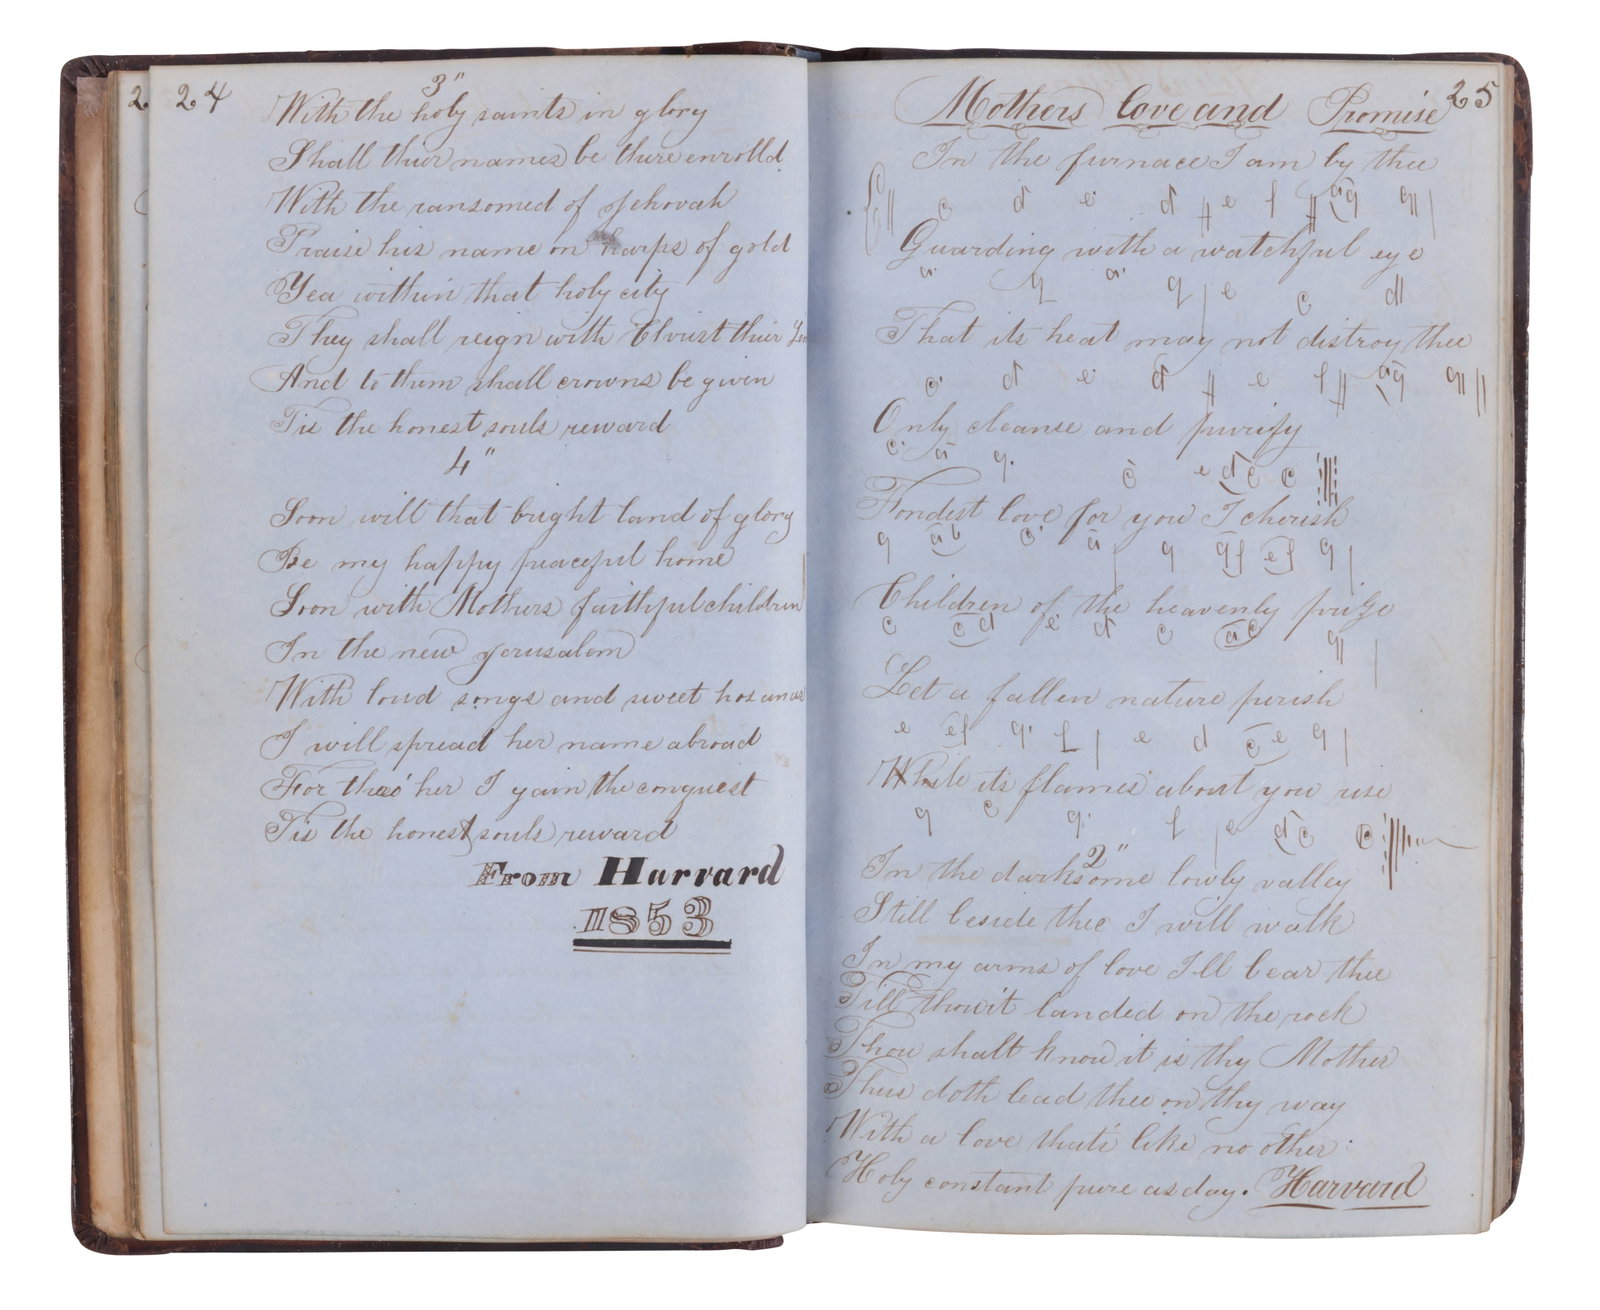 24
3"
With the holy saints in glory
Shall thier names be there enrolld
With the ransomed of Jehovah
Praise his name on harps of gold
Yea within that holy city
They shall reign with Christ thier
And to them shall crowns be given
Tis the honest souls reward
4"
Soon will that bright land of glory
Be my happy peaceful home
Soon with Mothers faithful children
In the new Jerusalem
With loud songs and sweet hosannas
I will spread her name abroad
For thro' her I gain the conquest
Tis the honest souls reward
From Harvard
1853
2
25
Mothers love and Promise
In the furnace I am by thee
c d e d e f a g g
Guarding with a watchful eye
a g a g e c d
That its heat may not distroy thee
c d e d e f a g g
Only cleanse and purify
c a g c e d c c
Fondest love for you I cherish
g a b c a g g f e f g
Children of the heavenly prize
c c d e d c a c g
Let a fallen nature perish
e e f g f e d c e g
While its flames about you rise
g c g f e d c c
2"
In the darksome lowly valley
Still beside thee I will walk
In my arms of love Ill bear thee
Till thou'rt landed on the rock
Thou shalt know it is thy Mother
Thus doth lead thee on thy way
With a love that's like no other
Holy constant pure as day. Harvard